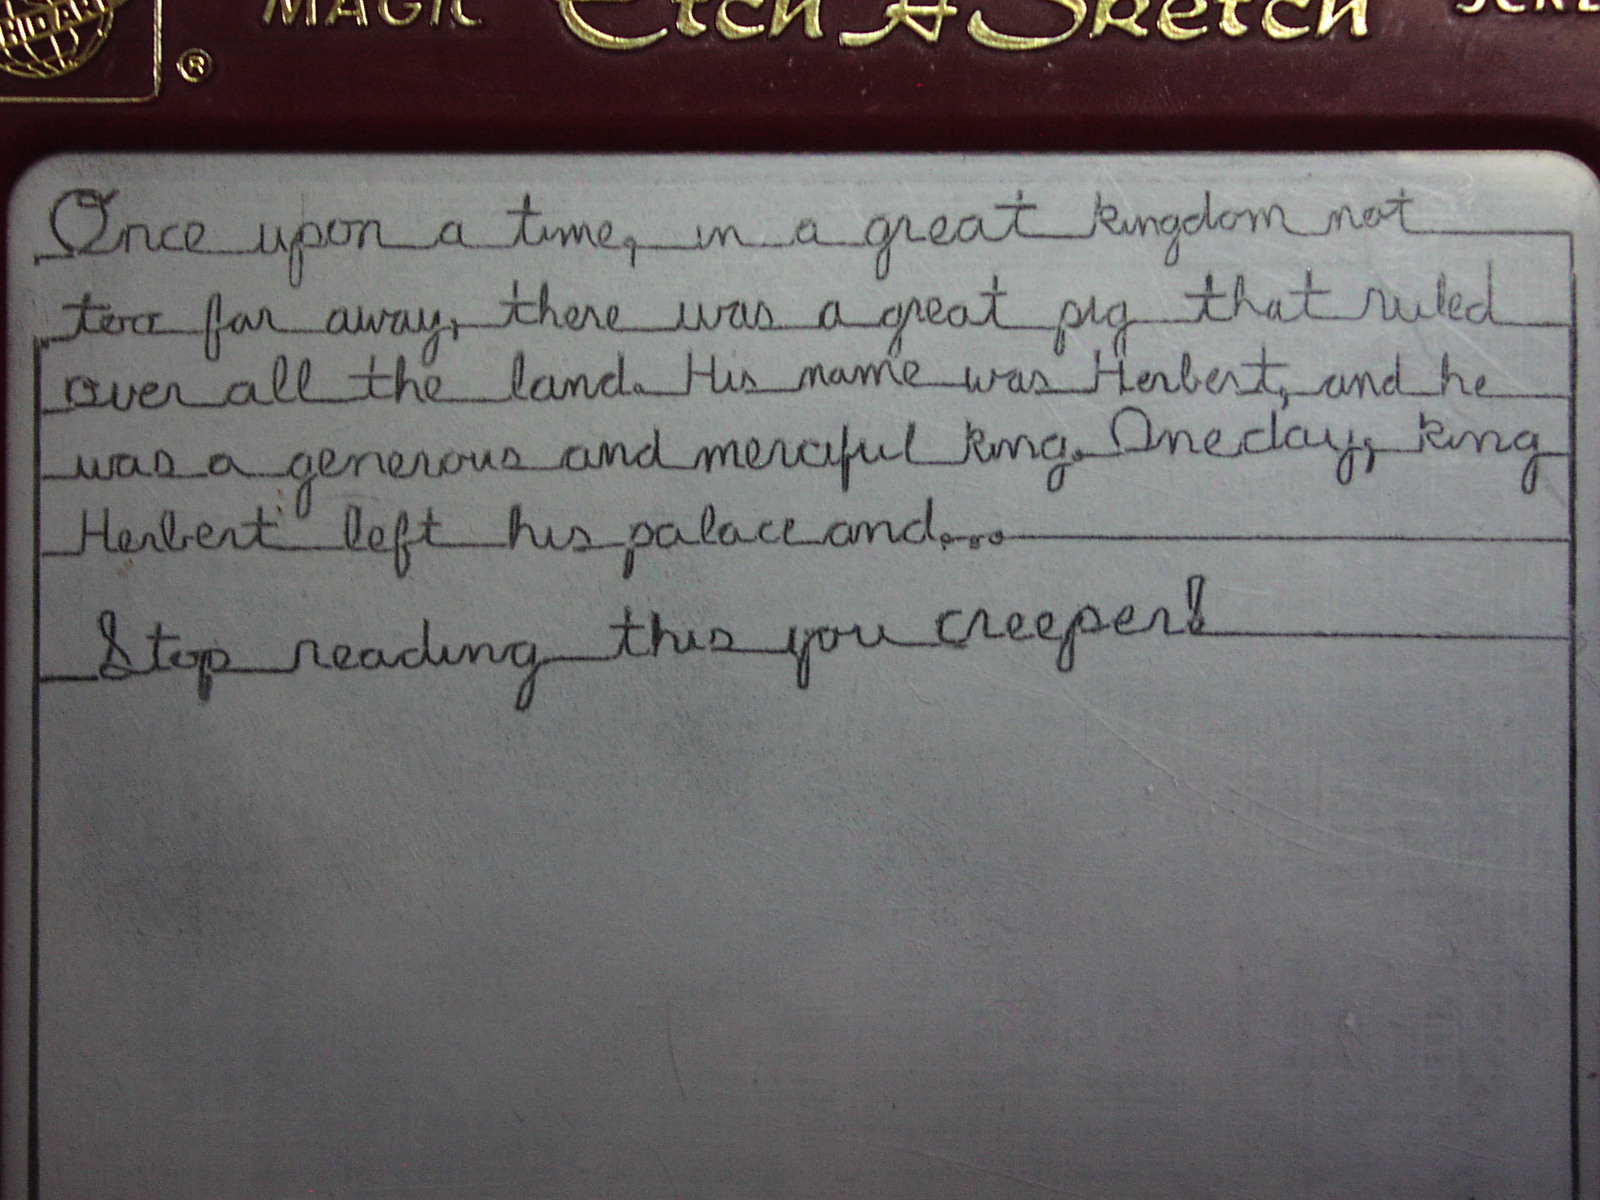 MAGIC Etch A Sketch
®
Once upon a time, in a great kingdom not
too far away, there was a great pig that ruled
over all the land. His name was Herbert, and he
was a generous and merciful king. One day, king
Herbert left his palace and...
Stop reading this you creeper!